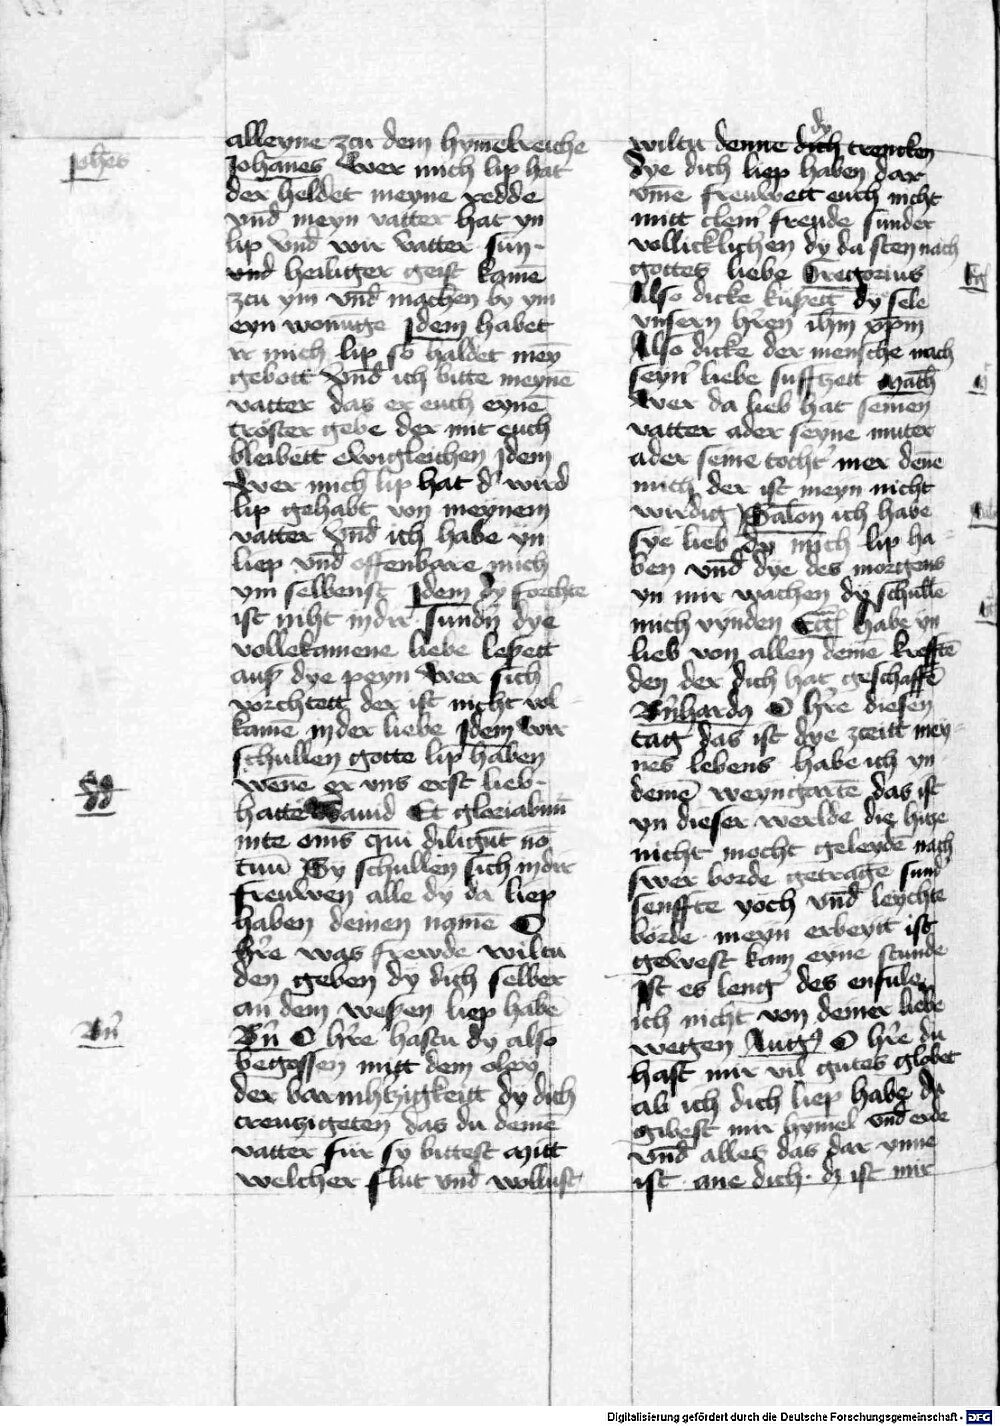 alleyne zcu dem hymelreiche
Joh'es
Johānes Wer mich lip hat
der heldet meyne redde
vnd meyn vatter hat yn
lip vnd wir vatter sun
vnd heiliger geist kamē
zcu ym vnd machen by ym
eyn wonūge Jdem habet
ir mich lip so haldet mey
gebott vnd ich bitte meynē
vatter das er euch eynē
troster gebe der mit euch
bleibett ewigleichen Jdem
Wer mich lip hat d' wird
lip gehabt von meynem
vatter vnd ich habe yn
liep vnd offenbare mich
ym selbenst Jdem dy forchte
ist niht in d'r sundn̄ dye
vollekamene liebe leßett
auß dye peyn Wer sich
vorchtett der ist nicht vol-
kamē in der liebe Jdem wir
schullen gotte lip haben
wene er vns erst lieb
hatte Dauid Et gloriabun̄
in te om̄s qui diligūt no
tuū Sy schullen sich in dir
freuwen alle dy da liep
haben deinen namē O
h're was frewde wiltu
den geben dy dich selber
an dem weßen liep habē
Bn̄
Bn̄ O h're hastu dy also
begossen mitt dem oley
der barmh'tzigkeitt dy dich
creutzigeten das du deinē
vatter fur sy bittest Mitt
welcher flut vnd wollust
dy
wiltu denne dich trencken
Dye dich liep haben dar
vme freuwett euch nicht
mitt clein' freude sunder
vollicklichen dy da sten nach
gottes liebe Gregorius
Also dicke kußett dy sele
vnsern h'ren ih'm xp̄m
Also dicke der mensche nach
seyn' liebe sufftzett Math
Wer da lieb hat seinen
vatter ader seyne muter
ader seine tocht' mer dene
mich der ist meyn nicht
wirdig Salon ich habe
sye lieb dy mich lip ha-
ben vnd dye des morgens
yn mir wachen dy schulle
mich vynden habe yn
lieb von allen deine krefftē
den der dich hat geschaffē
Bnhardq O h're diesen
tag das ist dye zceitt mey-
nes lebens habe ich yn
deinē weyngartē das ist
yn dieser werlde die hitze
nicht mocht geleydē nach
swer borde getrage sund'
senffte yoch vnd leychte
borde meyn erbeyt ist
gewest kam eyne stunde
Jst es leng' des enfule
ich nicht von deiner liebe
wegen Augq O h're du
hast mir vil gutes globet
ab ich dich liep habe du
gibest mir hymel vnd erde
vnd alles das dar ynne
ist ane dich dz ist mir